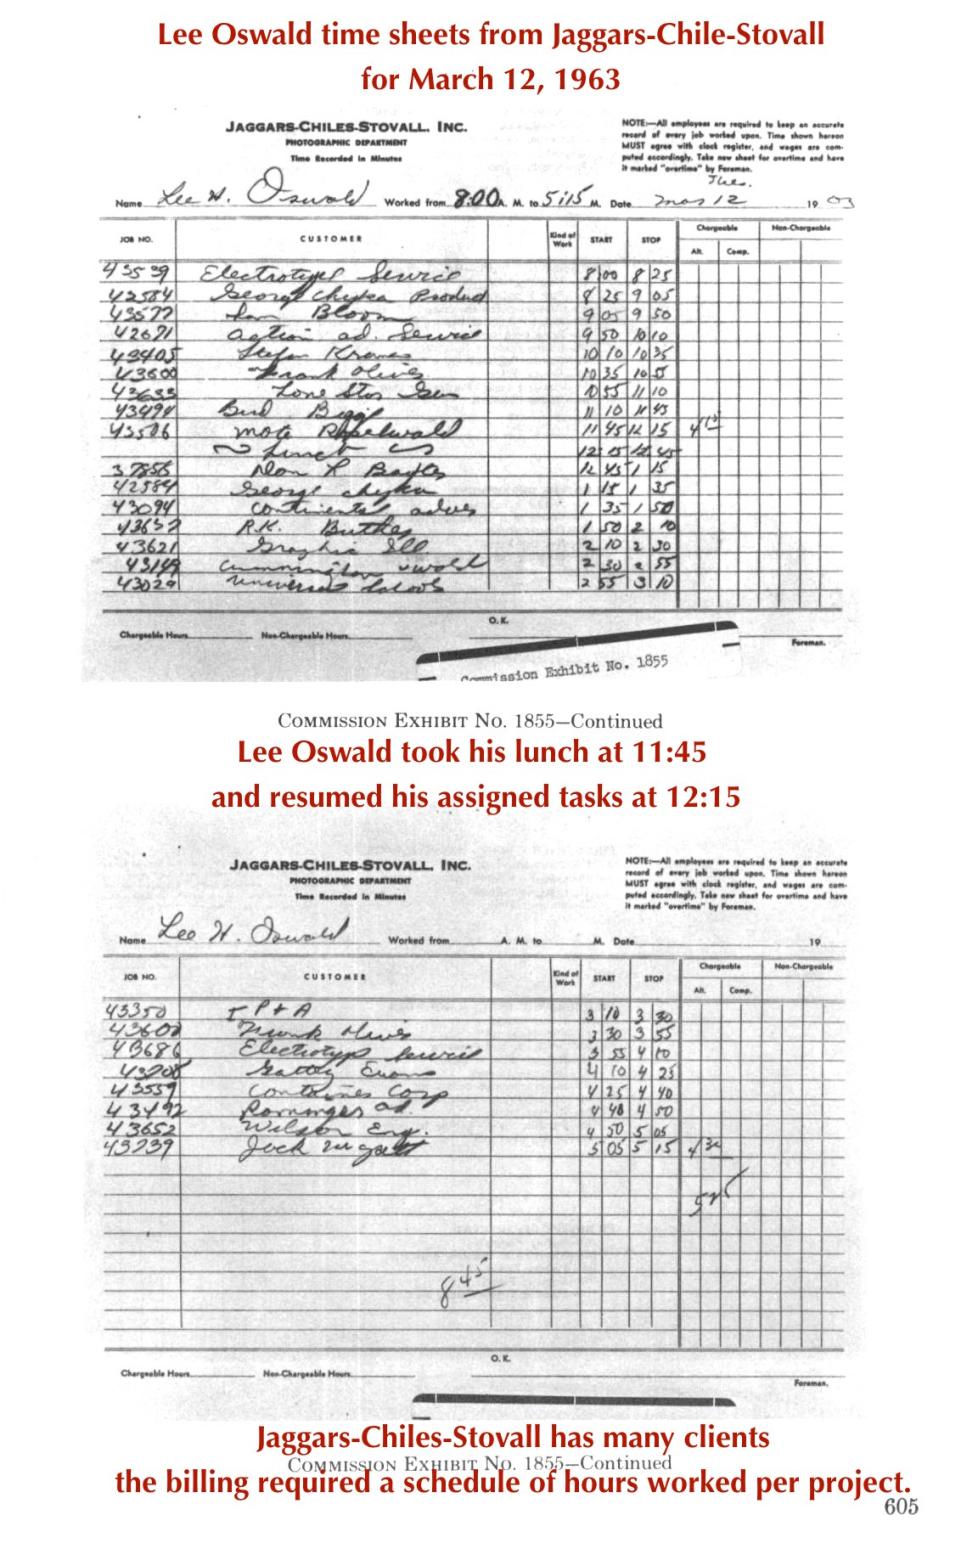 Lee Oswald time sheets from Jaggars-Chile-Stovall
for March 12, 1963
JAGGARS-CHILES-STOVALL, INC.
PHOTOGRAPHIC DEPARTMENT
Time Recorded in Minutes
NOTE:—All employees are required to keep an accurate
record of every job worked upon. Time shown hereon
MUST agree with clock register, and wages are com-
puted accordingly. Take new sheet for overtime and have
it marked "overtime" by Foreman.
Name Lee H. Oswald Worked from 8:00 A. M. to 5:15 M. Date Mar 12 19 63
JOB NO. CUSTOMER Kind of Work START STOP Chargeable Non-Chargeable
Alt. Comp.
43539 Electrotype Service 8 00 8 25
42584 George Chyka Product 8 25 9 05
43577 Sam Bloom 9 05 9 50
42671 Action ad. Service 9 50 10 10
43405 10 10 10 35
43600 Frank Olives 10 35 10 55
42633 Lone Star 10 55 11 10
43494 11 10 11 45
43506 11 45 12 15
Lunch 12 15 12 45
37856 Don L Baxter 12 45 1 15
42584 George Chyka 1 15 1 35
43094 Continental 1 35 1 50
43657 R.K. Butler 1 50 2 10
43621 Graphic Ill 2 10 2 30
43149 2 30 2 55
43029 Universal 2 55 3 10
O.K.
Chargeable Hours Non-Chargeable Hours Foreman.
Commission Exhibit No. 1855
COMMISSION EXHIBIT No. 1855—Continued
Lee Oswald took his lunch at 11:45
and resumed his assigned tasks at 12:15
JAGGARS-CHILES-STOVALL, INC.
PHOTOGRAPHIC DEPARTMENT
Time Recorded in Minutes
NOTE:—All employees are required to keep an accurate
record of every job worked upon. Time shown hereon
MUST agree with clock register, and wages are com-
puted accordingly. Take new sheet for overtime and have
it marked "overtime" by Foreman.
Name Lee H. Oswald Worked from A. M. to M. Date 19
JOB NO. CUSTOMER Kind of Work START STOP Chargeable Non-Chargeable
Alt. Comp.
43350 3 10 3 30
43600 Frank Olives 3 30 3 55
43686 Electrotype Service 3 55 4 10
43208 Evans 4 10 4 25
43559 Containes Corp 4 25 4 40
43492 ad. 4 40 4 50
43652 Wilson Eng. 4 50 5 05
43239 Jack 5 05 5 15
8 45
O.K.
Chargeable Hours Non-Chargeable Hours Foreman.
Jaggars-Chiles-Stovall has many clients
COMMISSION EXHIBIT No. 1855—Continued
the billing required a schedule of hours worked per project.
605